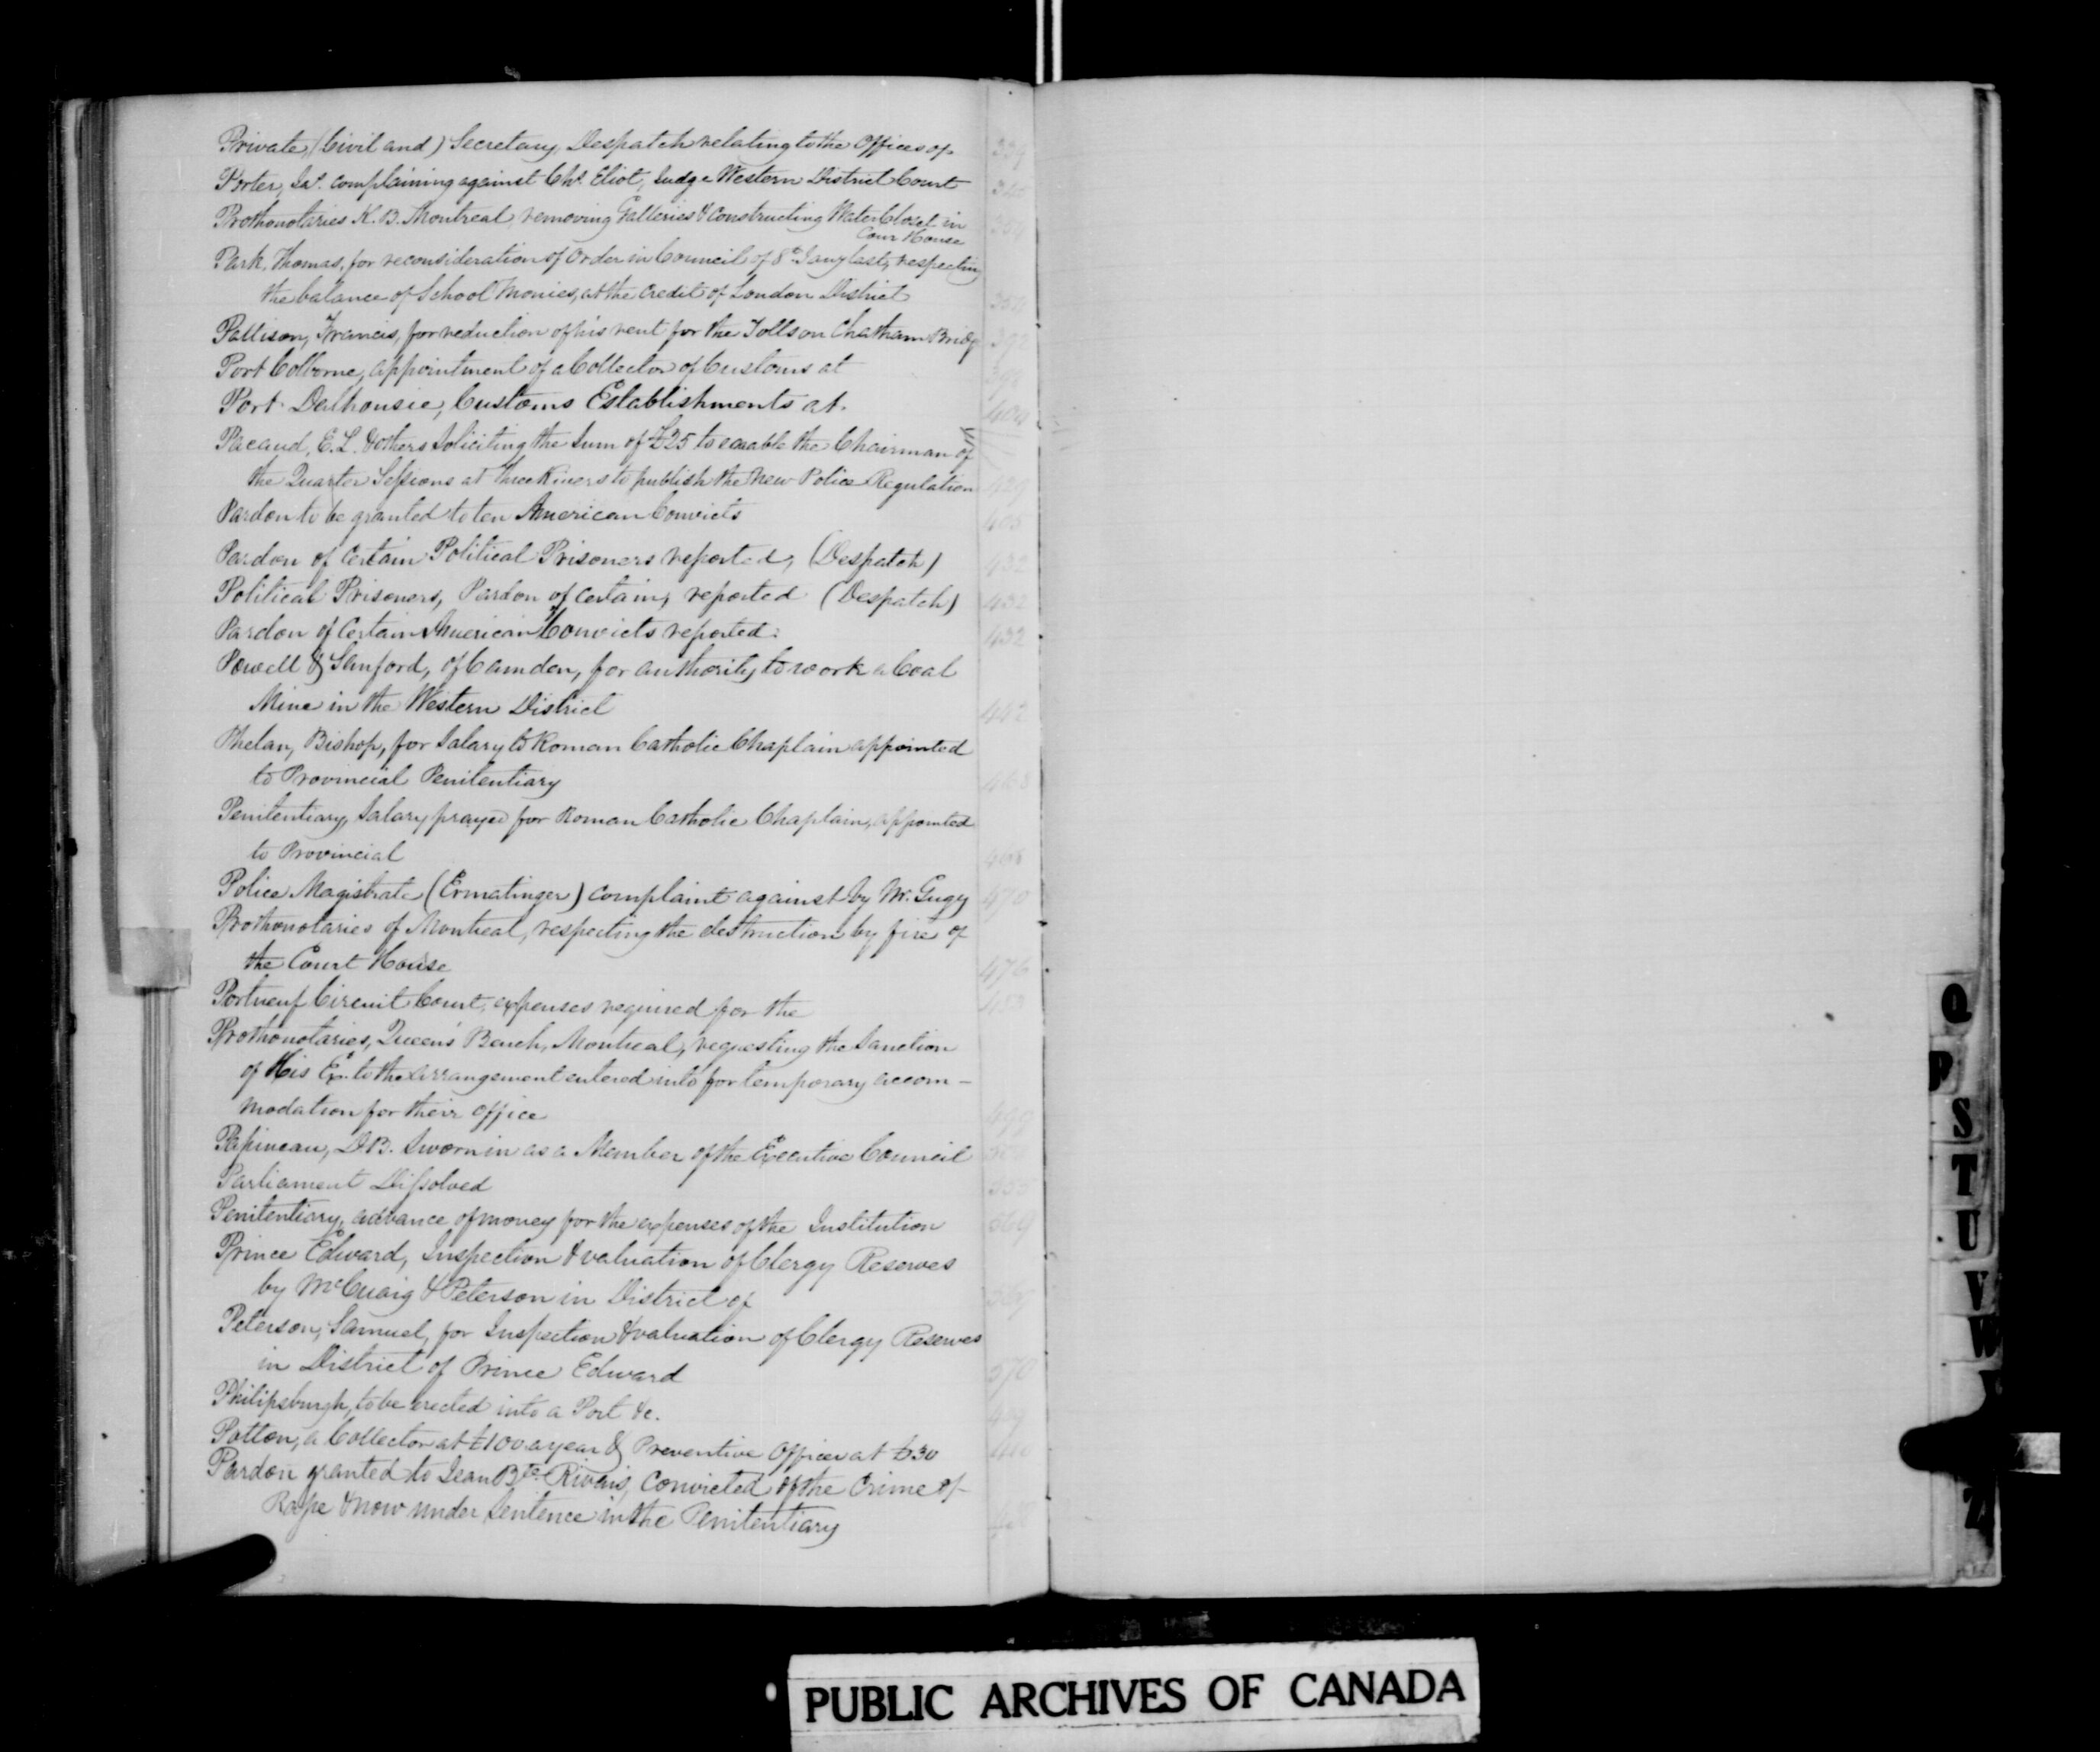 Private, (Civil and) Secretary, Despatch relating to the Offices of. 339
Porter, Jas. complaining against Chs. Eliot, Judge Western District Court
Prothonotaries K.B. Montreal, removing Galleries & Constructing Water Closet in
Cour House
Park, Thomas, for reconsideration of Order in Council of 8th Jany last, respecting
the balance of School Monies, at the Credit of London District
Pattison, Francis, for reduction of his rent for the Tolls on Chatham Bridg 392
Port Colborne, appointment of a Collector of Customs at 398
Port Dalhousie, Customs Establishments at. 404
Pacaud, E.L. & others Soliciting the Sum of £25 to enable the Chairman of
the Quarter Sessions at Three Rivers to publish the New Police Regulation 429
Pardon to be granted to ten American Convicts
Pardon of Certain Political Prisoners reported, (Despatch) 432
Political Prisoners, Pardon of Certain, reported (Despatch) 432
Pardon of Certain American Convicts reported: 432
Powell & Sanford, of Camden, for authority to work a Coal
Mine in the Western District 442
Phelan, Bishop, for Salary to Roman Catholic Chaplain appointed
to Provincial Penitentiary
Penitentiary, Salary prayed for Roman Catholic Chaplain, appointed
to Provincial
Police Magistrate (Ermatinger) complaint against by Mr. Gugy 470
Prothonotaries of Montreal, respecting the destruction by fire of
the Court House 476
Portneuf Circuit Court, expenses required for the
Prothonotaries, Queen's Bench, Montreal, requesting the Sanction
of His Ex. to the arrangement entered into for temporary accom-
modation for their Office 499
Papineau, D.B. Sworn in as a Member of the Executive Council
Parliament Dissolved
Penitentiary, advance of money for the expenses of the Institution 569
Prince Edward, Inspection & valuation of Clergy Reserves
by McCuaig & Peterson in District of
Peterson, Samuel, for Inspection & valuation of Clergy Reserves
in District of Prince Edward 570
Philipsburgh, to be erected into a Port &c.
Potton, a Collector at £100 a year & Preventive Officer at £30
Pardon granted to Jean Bte. Rivais, Convicted of the Crime of
Rape & now under Sentence in the Penitentiary
Q
P
S
T
U
V
W
Z
PUBLIC ARCHIVES OF CANADA